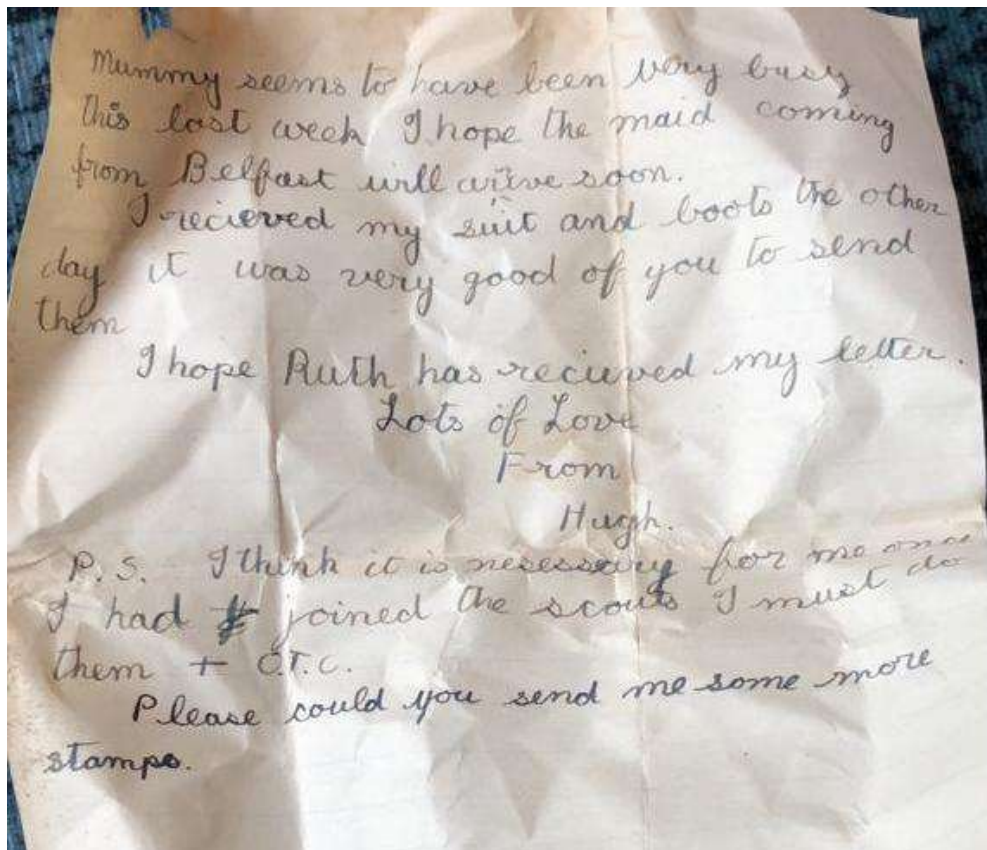 Mummy seems to have been very busy
this last week I hope the maid coming
from Belfast will arive soon.
I recieved my suit and boots the other
day it was very good of you to send
them
I hope Ruth has recieved my letter.
Lots of Love
From
Hugh.
P.S. I think it is nesessary for me once
I had joined the scouts I must do
them + O.T.C.
Please could you send me some more
stamps.